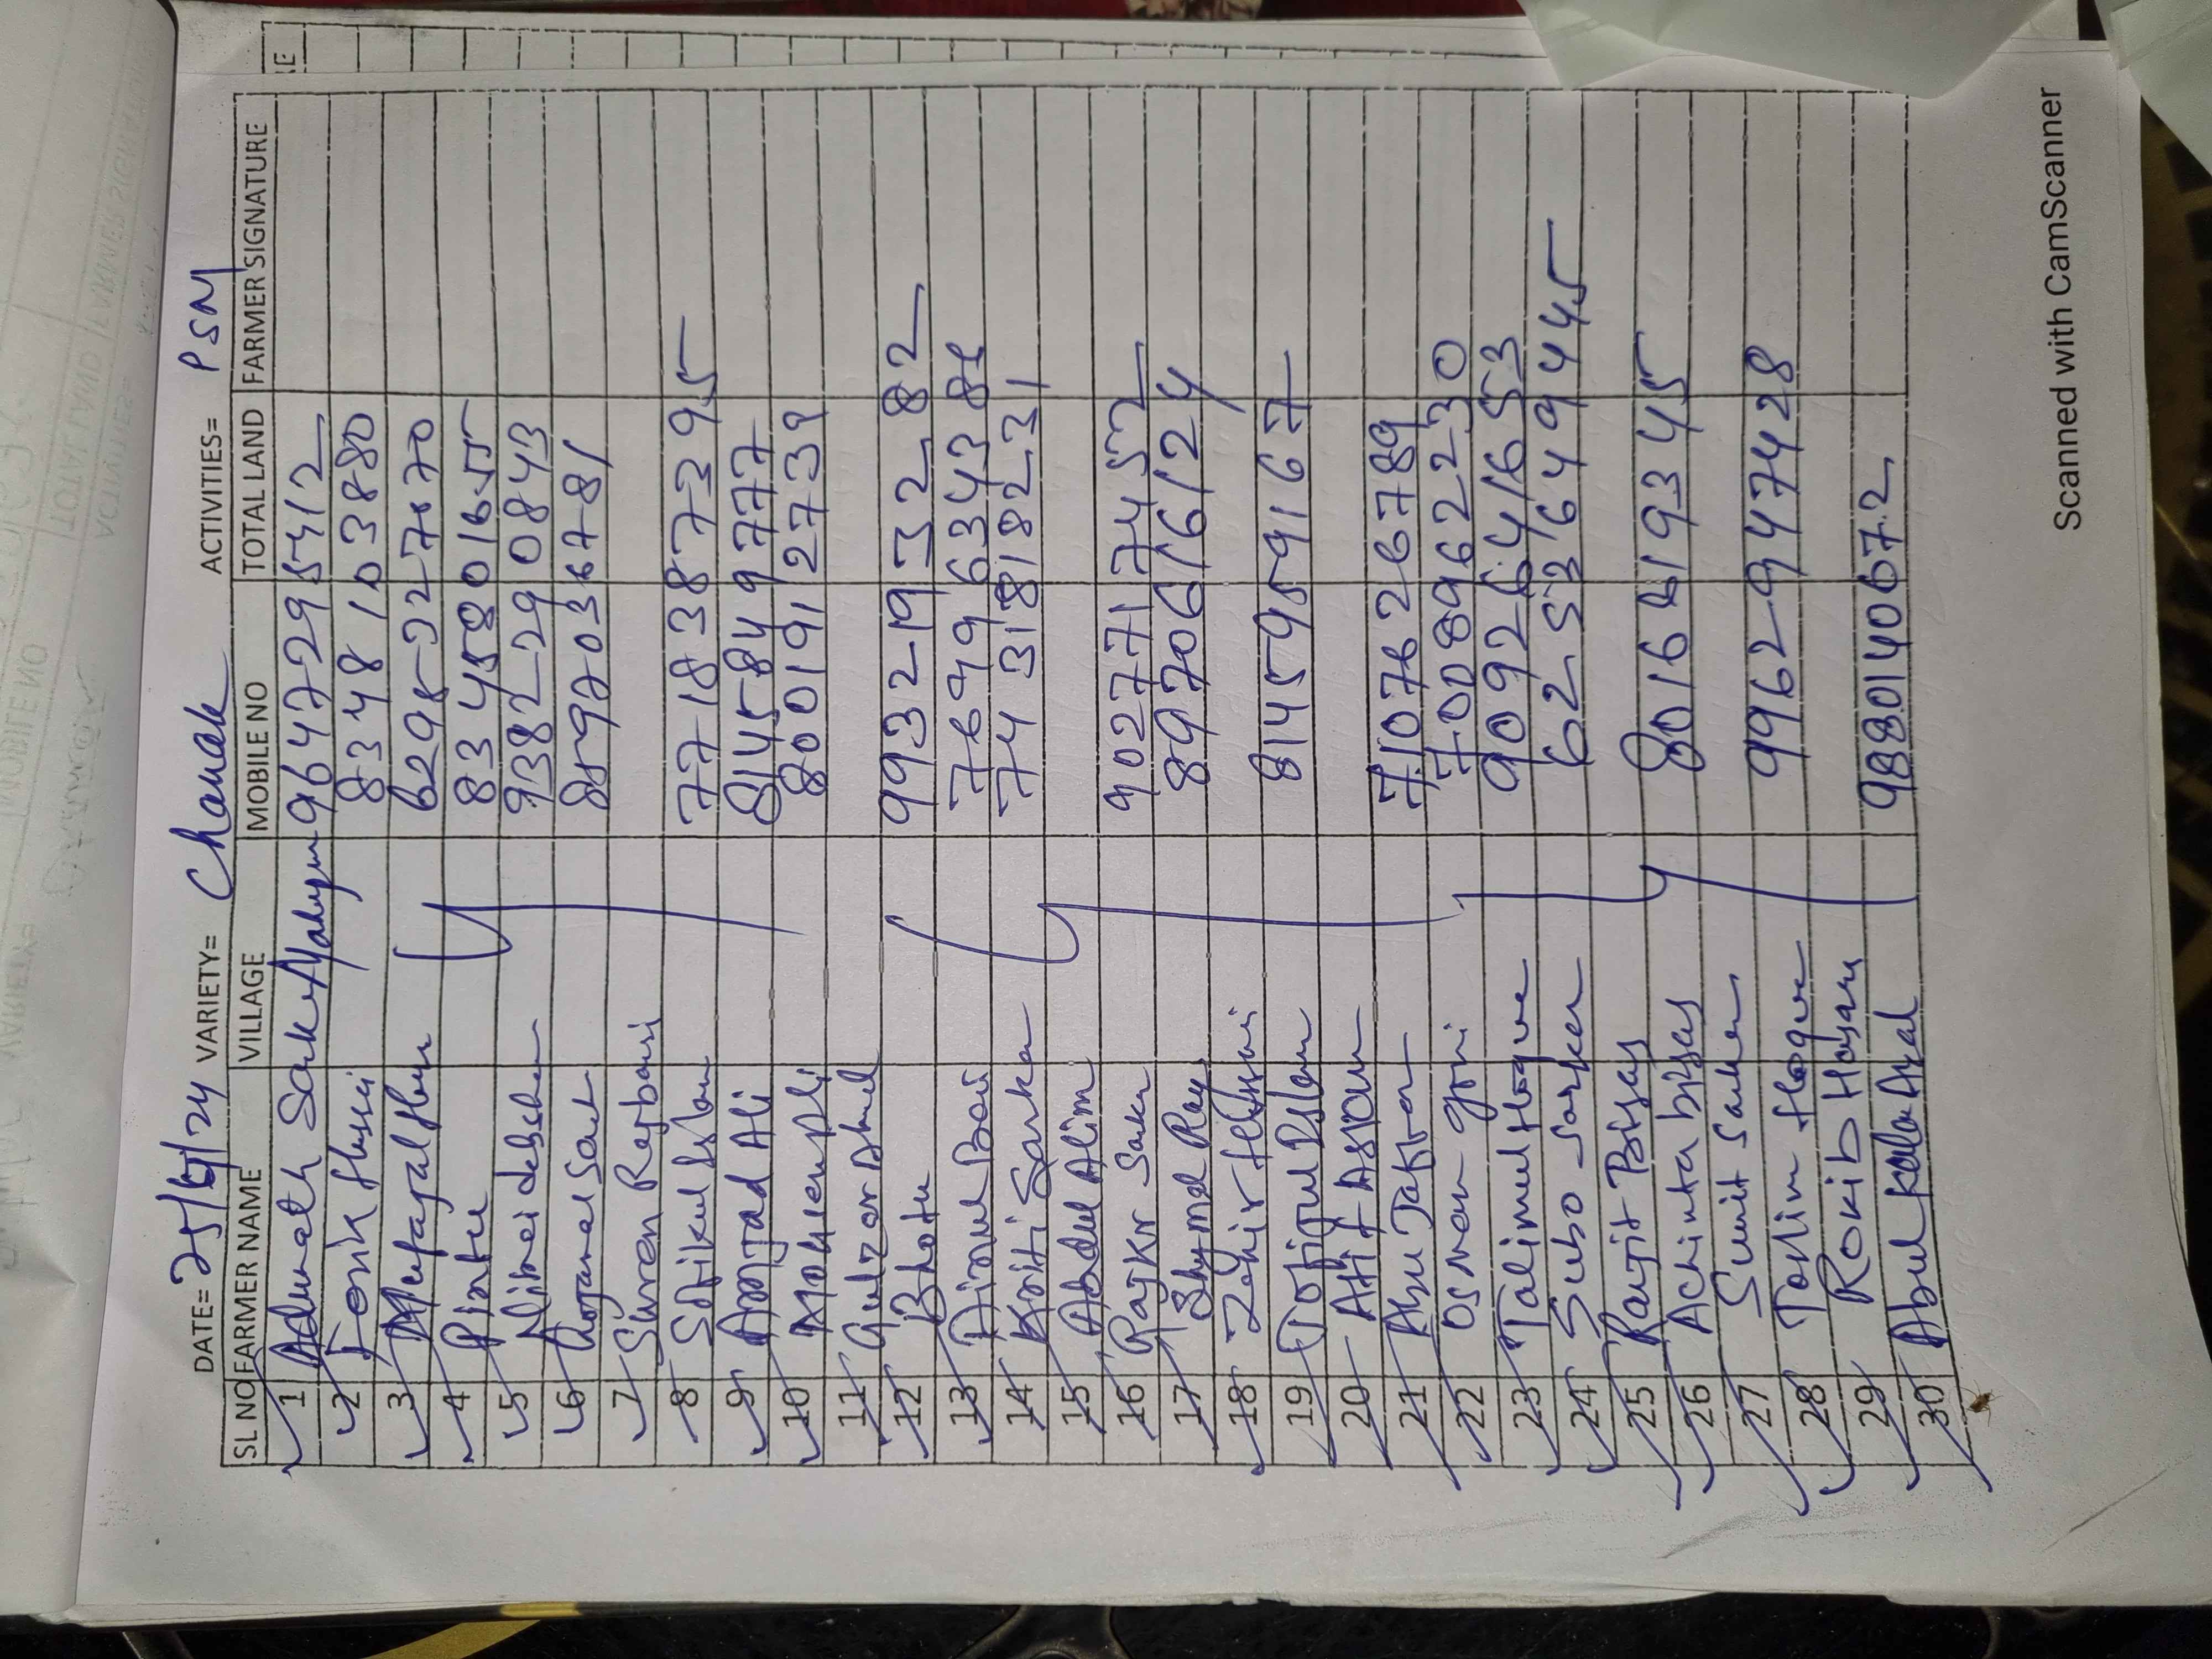 DATE= 25/07/24 VARIETY= Chanak ACTIVITIES= PSM
SL NO FARMER NAME VILLAGE MOBILE NO TOTAL LAND FARMER SIGNATURE
1 Adunath Sarker 9647295412
2 8348103880
3 6295327070
4 Pintu 8345801655
5 Nimai debsharma 9382290843
6 8597036781
7 Suren Rajbansi
8 Sofikul Islam 7718387395
9 Amjad Ali 8145849777
10 Mohsen Ali 8001912739
11 Gulzar Ahmed
12 Bhotu 9932193282
13 7699634386
14 Kriti Sarkar 7431818231
15 Abdul Alim
16 Rajkr Saker 9027717452
17 Shymal Ray 8970616124
18 Zahir Hussain
19 Tofiqul Islam 8145959167
20 Atif Aslam
21 Abu Taker 7107626789
22 Osman goni 7008962230
23 Talimul Hoque 9092641653
24 Subo Sarker 6253649445
25 Ranjit Bisas
26 Achinta bisas 8016819345
27 Sumit Sarker
28 Taslim Hoque 9962947428
29 Rakib Hasan
30 Abul Kalam Azad 9880140672
Scanned with CamScanner